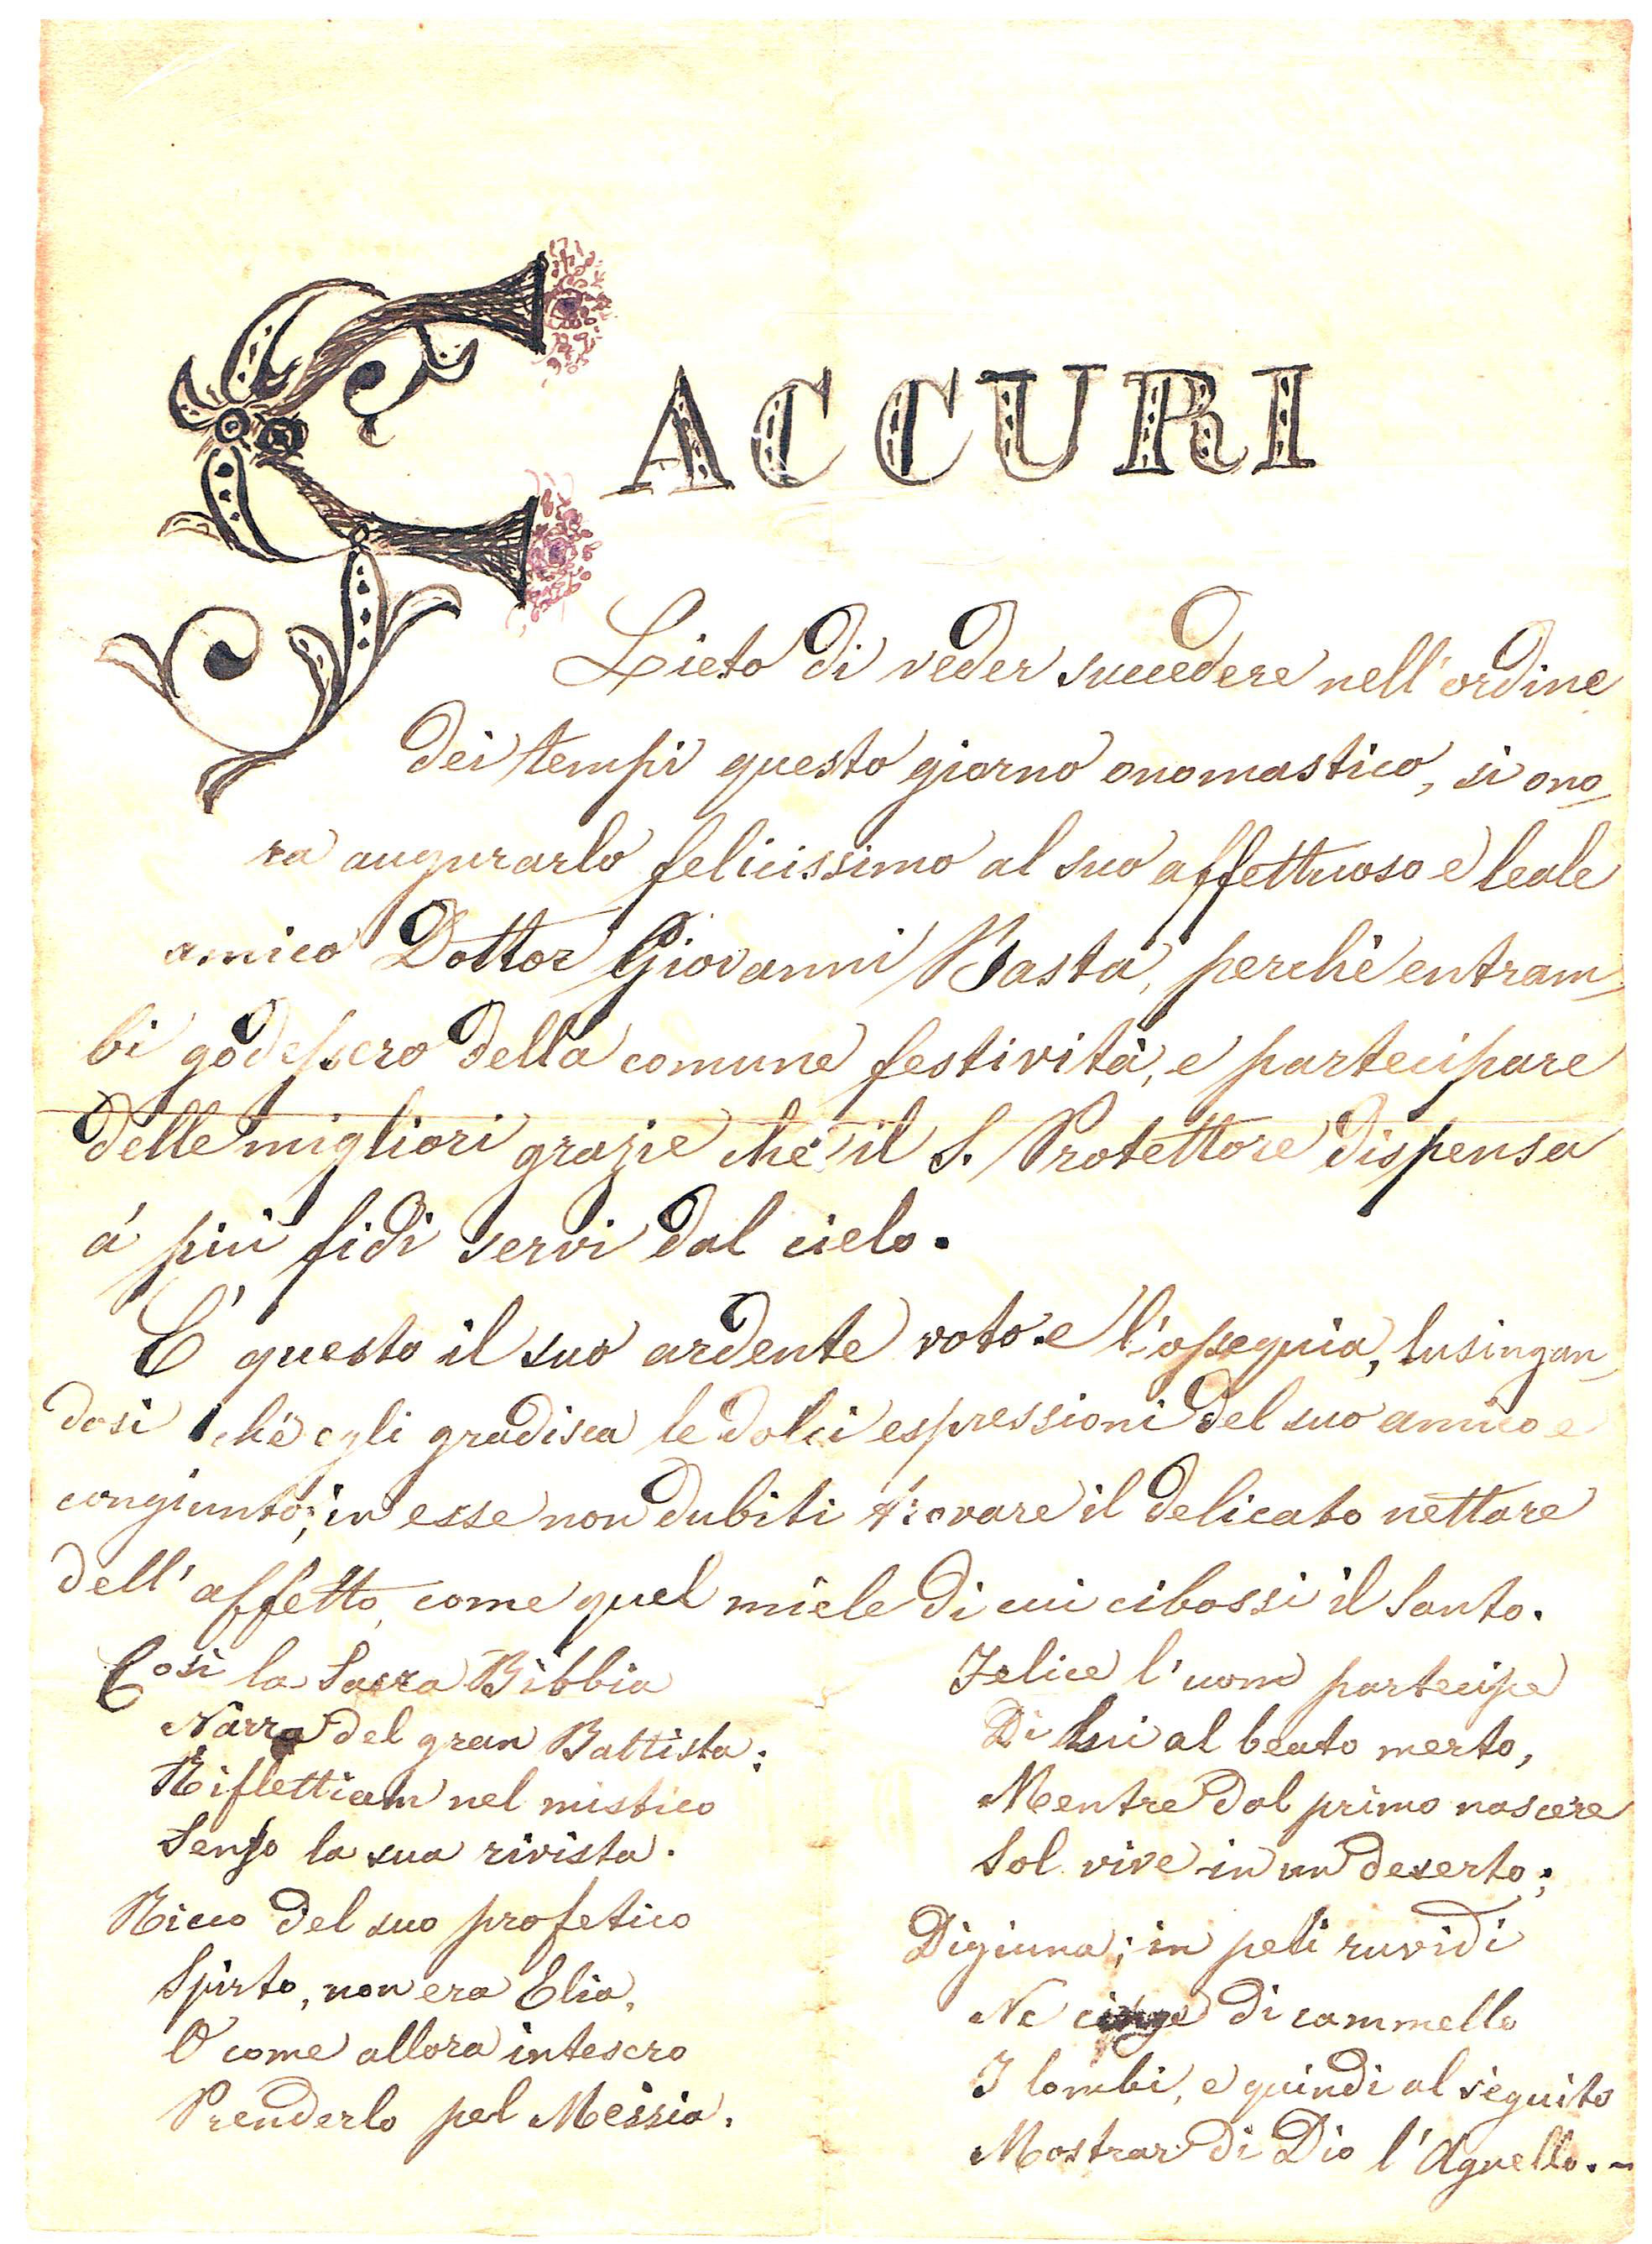 CACCURI
Lieto di veder succedere nell'ordine
dei tempi questo giorno onomastico, si ono-
ra augurarlo felicissimo al suo affettuoso e leale
amico Dottor Giovanni Basta, perchè entram-
bi godessero della comune festività, e partecipare
delle migliori grazie che il S. Protettore dispensa
a' più fidi servi dal cielo.
E' questo il suo ardente voto e l'ossequia, lusingan-
dosi che egli gradisca le dolci espressioni del suo amico e
congiunto; in esse non dubiti trovare il delicato nettare
dell'affetto, come quel miele di cui cibossi il Santo.
Così la Sacra Bibbia
Narra del gran Battista:
Riflettiam nel mistico
Senso la sua rivista.
Ricco del suo profetico
Spirto, non era Elia,
O come allora intesero
Prenderlo pel Messia.
Felice l'uom partecipe
Di lui al beato merto,
Mentre dal primo nascere
Sol vive in un deserto;
Digiuna; in peli ruvidi
Ne cinge di cammello
I lombi, e quindi al seguito
Mostrar di Dio l'Agnello. -